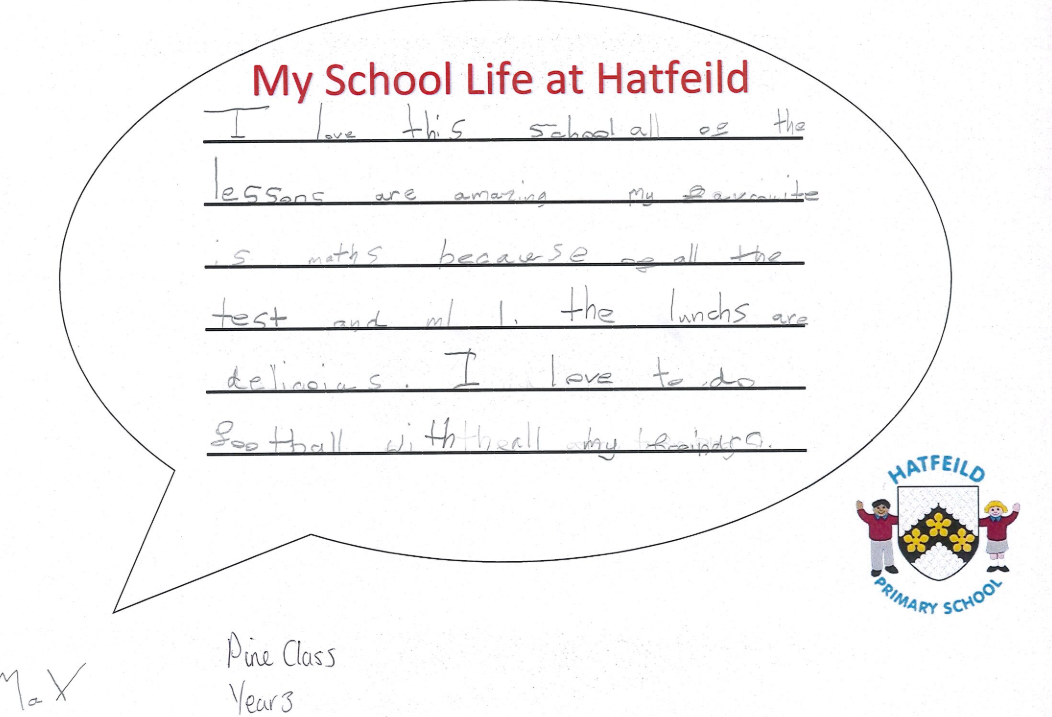 My School Life at Hatfeild
I love this school all of the
lessons are amazing my favroite
is maths because of all the
test and the lunchs are
delicious. I love to do
football with all my freinds.
HATFEILD
PRIMARY SCHOOL
Pine Class
Max
Year 3